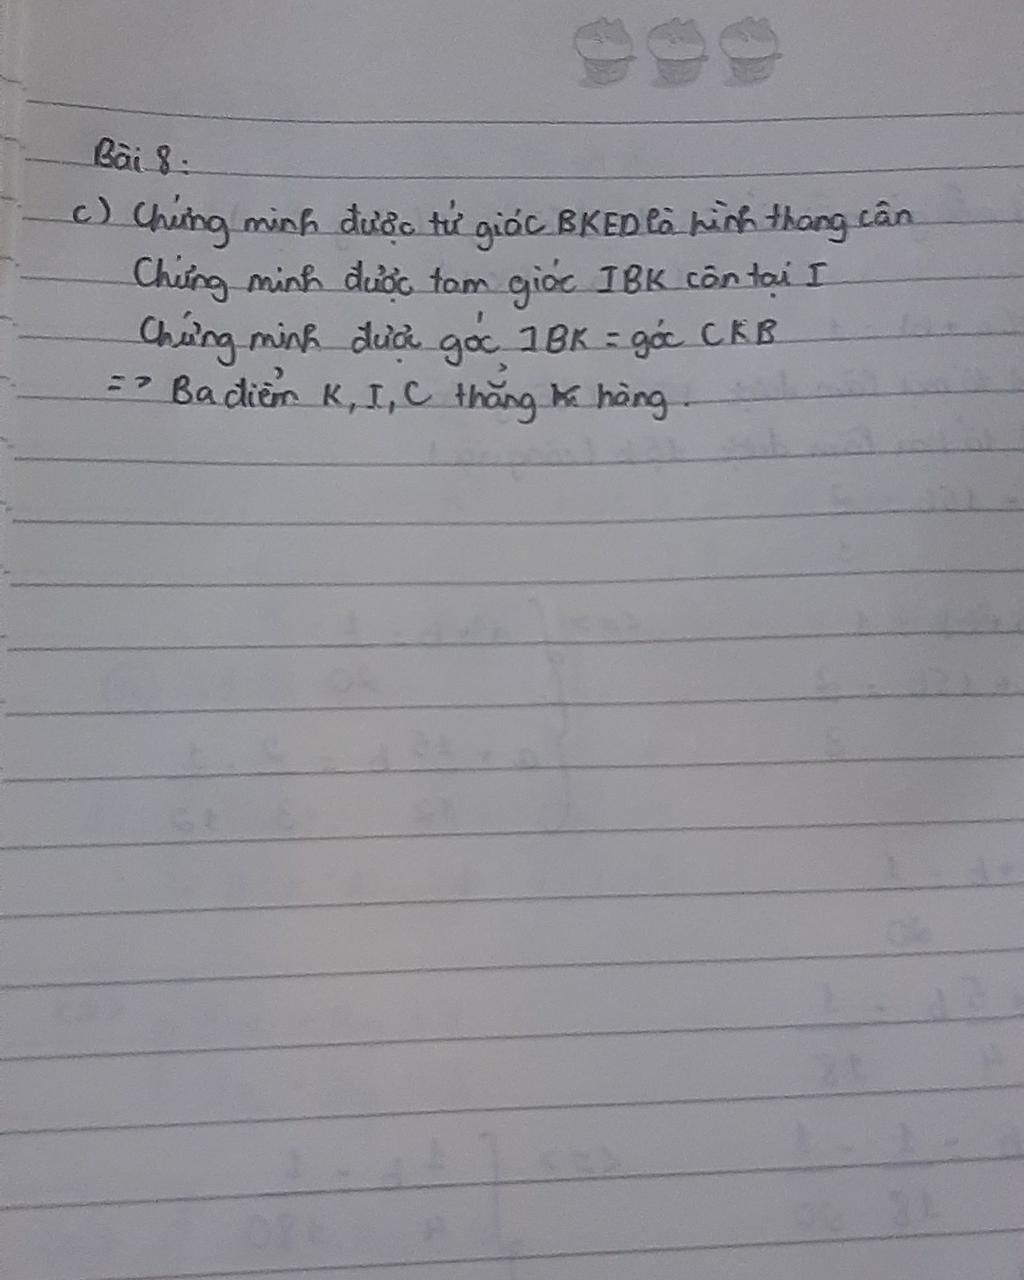 Bài 8:
c) Chứng minh được tứ giác BKED là hình thang cân
Chứng minh được tam giác IBK cân tại I
Chứng minh được góc IBK = góc CKB
=> Ba điểm K, I, C thẳng hàng.